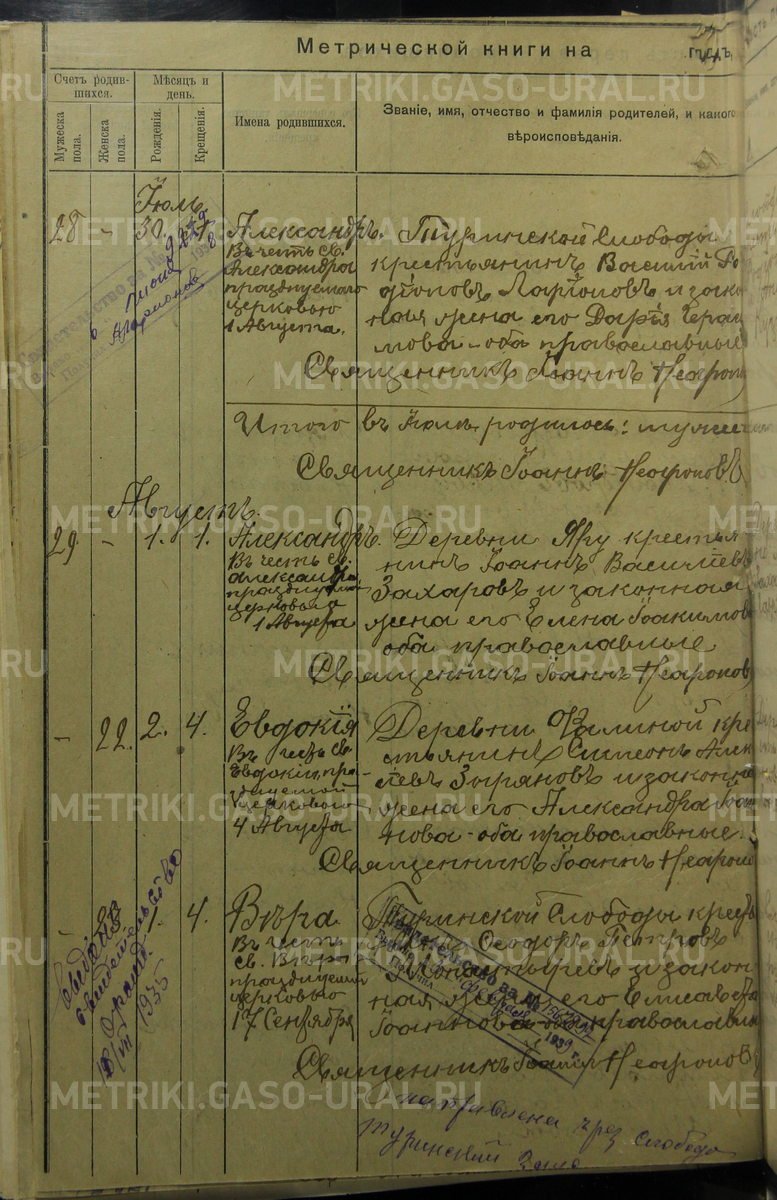 Метрической книги на годъ
Счетъ родившихся.
Мѣсяцъ и день.
Мужеска пола.
Женска пола.
Рожденія.
Крещенія.
Имена родившихся.
Званіе, имя, отчество и фамилія родителей, и какого
вѣроисповѣданія.
Іюль
28 - 30.
Александръ.
Въ честь св.
Александра
празднуемаго
церковью
1 Августа.
Туринской Слободы
крестьянинъ Василій
Ларіоновъ и зако
ная жена его Дарья Гераси
мова - оба православные
Священникъ Іоаннъ Неаронов
Итого въ Іюлѣ родилось: муже
Священникъ Іоаннъ Неароновъ
Августъ.
29 - 1. 1.
Александръ.
Въ честь св.
Александра
празднуем
церковью
1 Августа
Деревни Яру крестья
нинъ Іоаннъ Васильевъ
Захаровъ и законная
жена его Елена Іоакимов
оба православные
Священникъ Іоаннъ Неаронов
- 22. 2. 4.
Евдокія
Въ честь св.
Евдокіи, пра-
зднуемой
церковью
4 Августа
Деревни кре
стьянинъ Симеонъ Алек
Зыряновъ и законн
жена его Александра Іоан
нова - оба православные.
Священникъ Іоаннъ Неаронов
4.
Вѣра
Въ честь
св. Вѣры
празднуемый
церковью
17 Сентября
Туринской Слободы крест
Ѳеодоръ Петровъ
и закон
ная жена его Елисавета
Іоаннова оба православны
Священникъ Іоаннъ Неароновъ
1935
1939 г.
чрез Слободо
Туринский Загс
METRIKI.GASO-URAL.RU